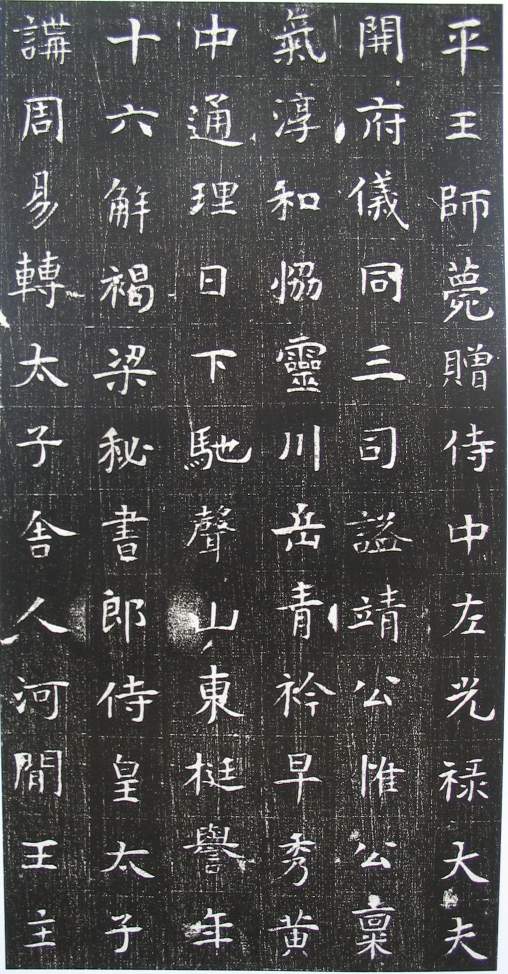 平王師薨贈侍中左光禄大夫
開府儀同三司謚靖公惟公稟
氣淳和恊靈川岳青衿早秀黄
中通理日下馳聲山東梃譽年
十六解褐梁秘書郎侍皇太子
講周易轉太子舎人河間王主